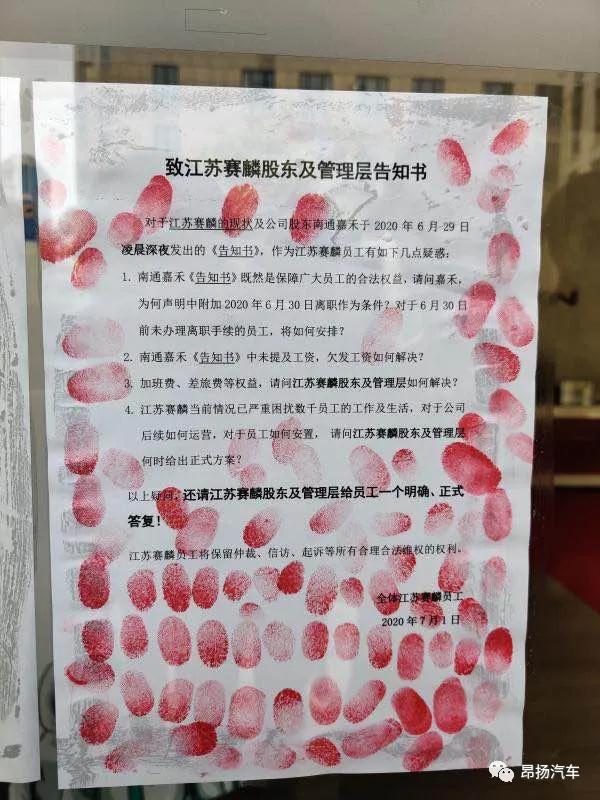 致江苏赛麟股东及管理层告知书
对于江苏赛麟的现状及公司股东南通嘉禾于 2020 年 6 月 29 日
凌晨深夜发出的《告知书》，作为江苏赛麟员工有如下几点疑惑：
1. 南通嘉禾《告知书》既然是保障广大员工的合法权益，请问嘉禾，
为何声明中附加 2020 年 6 月 30 日离职作为条件？对于 6 月 30 日
前未办理离职手续的员工，将如何安排？
2. 南通嘉禾《告知书》中未提及工资，欠发工资如何解决？
3. 加班费、差旅费等权益，请问江苏赛麟股东及管理层如何解决？
4. 江苏赛麟当前情况已严重困扰数千员工的工作及生活，对于公司
后续如何运营，对于员工如何安置， 请问江苏赛麟股东及管理层
何时给出正式方案？
以上疑问，还请江苏赛麟股东及管理层给员工一个明确、正式
答复！
江苏赛麟员工将保留仲裁、信访、起诉等所有合理合法维权的权利。
全体江苏赛麟员工
2020 年 7 月 1 日
昂扬汽车